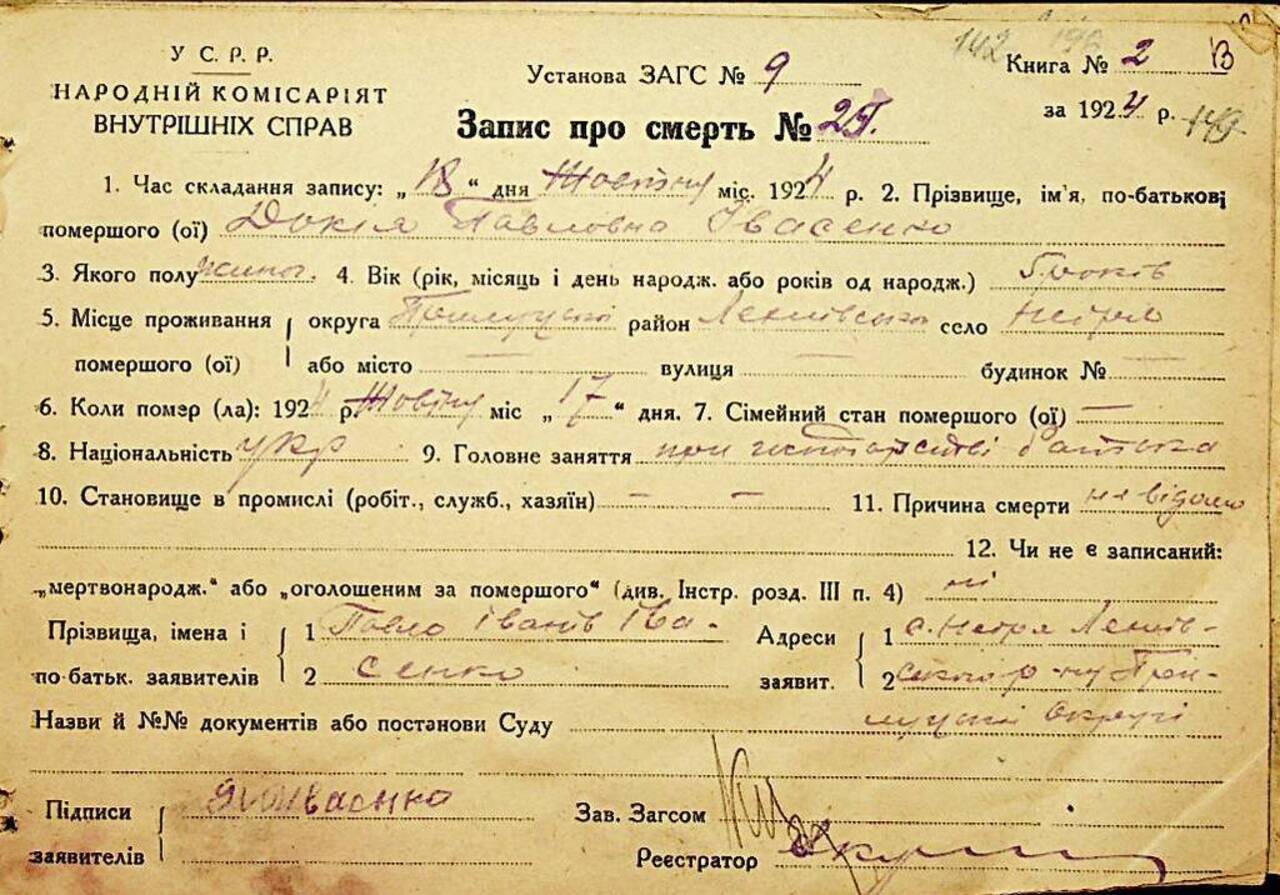 У С. Р. Р.
НАРОДНІЙ КОМІСАРІЯТ
ВНУТРІШНІХ СПРАВ
Установа ЗАГС № 9
Запис про смерть №
142
Книга № 2
за 1924 р.
1. Час складання запису: „18“ дня Жовтня міс. 1924 р. 2. Прізвище, ім'я, по-батькові
помершого (ої) Докія Павловна Івасенко
3. Якого полу жіноч. 4. Вік (рік, місяць і день народж. або років од народж.) 5 років
5. Місце проживання округа Прилуцькі район село
помершого (ої) або місто — вулиця — будинок № —
6. Коли помер (ла): 1924 р. Жовтня міс „17“ дня. 7. Сімейний стан помершого (ої) —
8. Національність укр 9. Головне заняття при господарстві батька
10. Становище в промислі (робіт., служб., хазяїн) — — 11. Причина смерти не відомо
12. Чи не є записаний:
„мертвонародж.“ або „оголошеним за помершого“ (див. Інстр. розд. III п. 4) ні
Прізвища, імена і 1 Павло Іванів Іва- Адреси 1 с.
по батьк. заявителів 2 сенко заявит. 2 р-ну При-
Назви й №№ документів або постанови Суду луцькі округи
Підписи Івасенко Зав. Загсом
заявителів Реєстратор